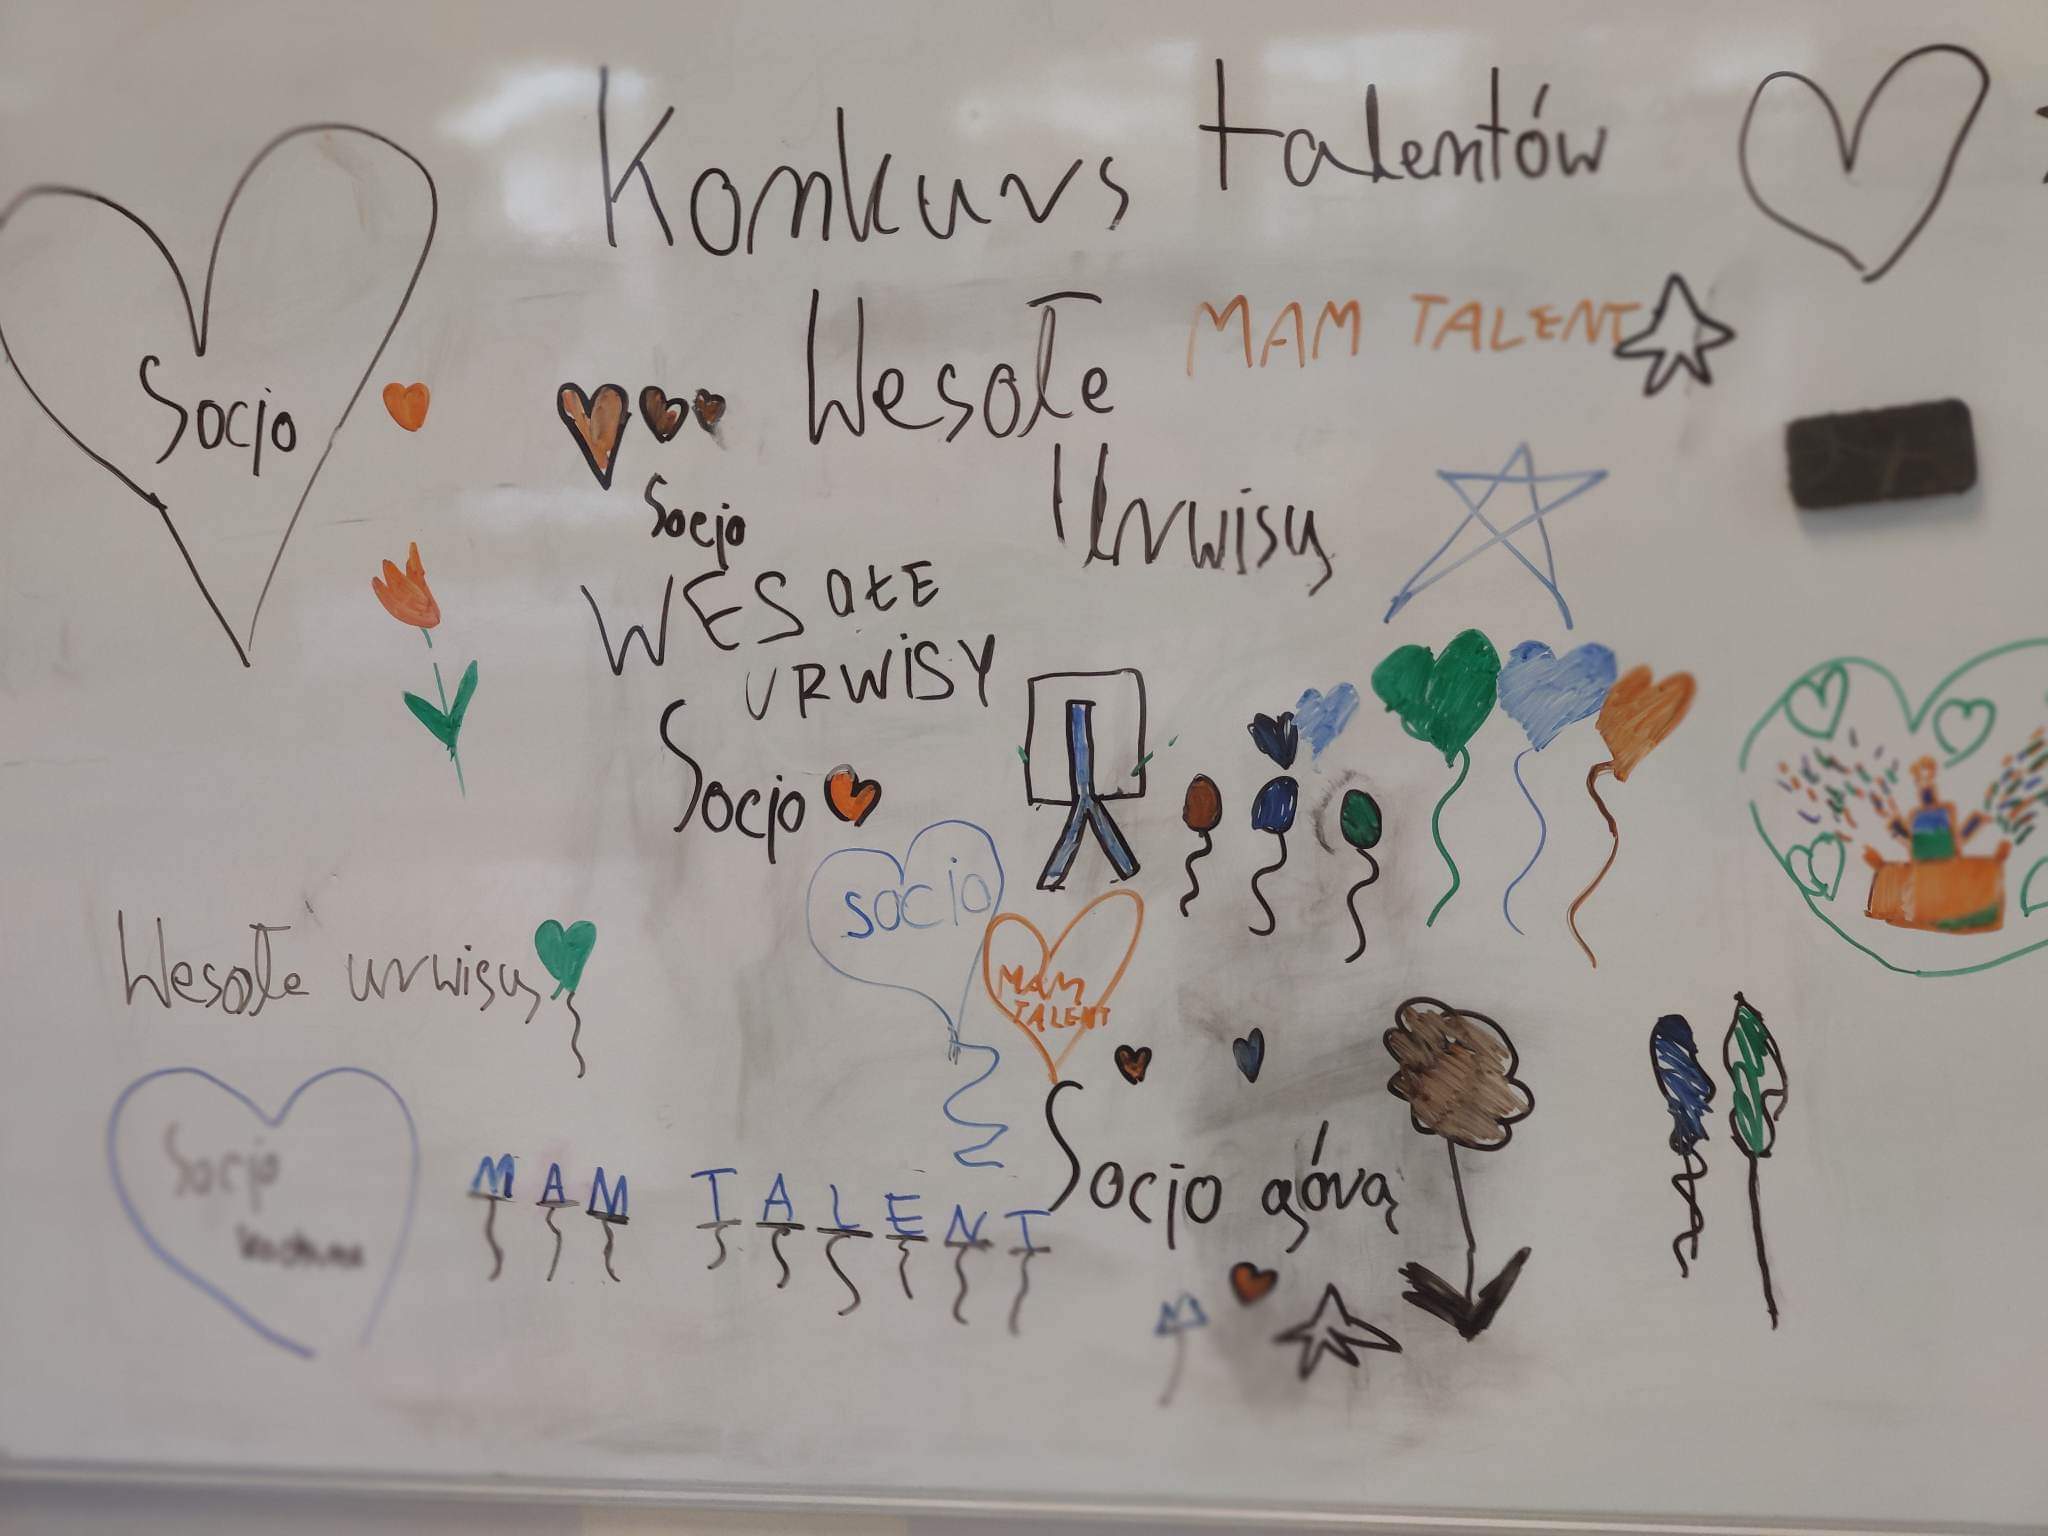 Konkurs talentów
Wesołe
MAM TALENT
Urwisy
Socjo
Socjo
WESOŁE
URWISY
Socjo
socjo
MAM
TALENT
Wesołe urwisy
Socjo
MAM TALENT
Socjo górą
M